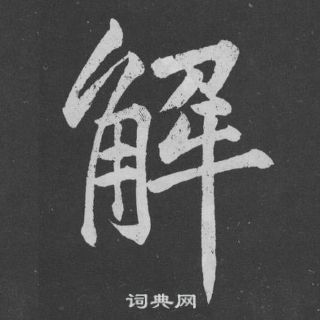 解
词典网